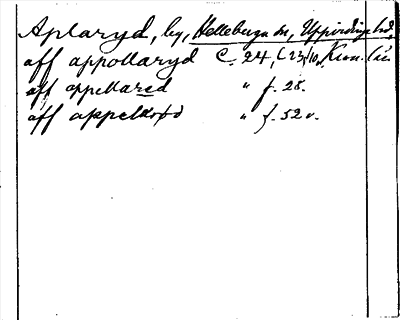 Aplaryd, by, Helleberga sn, Uppvidinge hd,
aff appollaryd C. 24, (23/10,
aff appellared " f. 28.
aff appelrydd " f. 52 v.